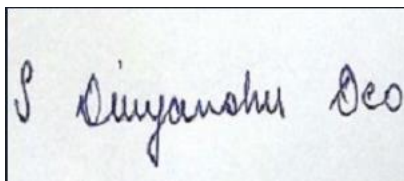 S Divyanshu Deo